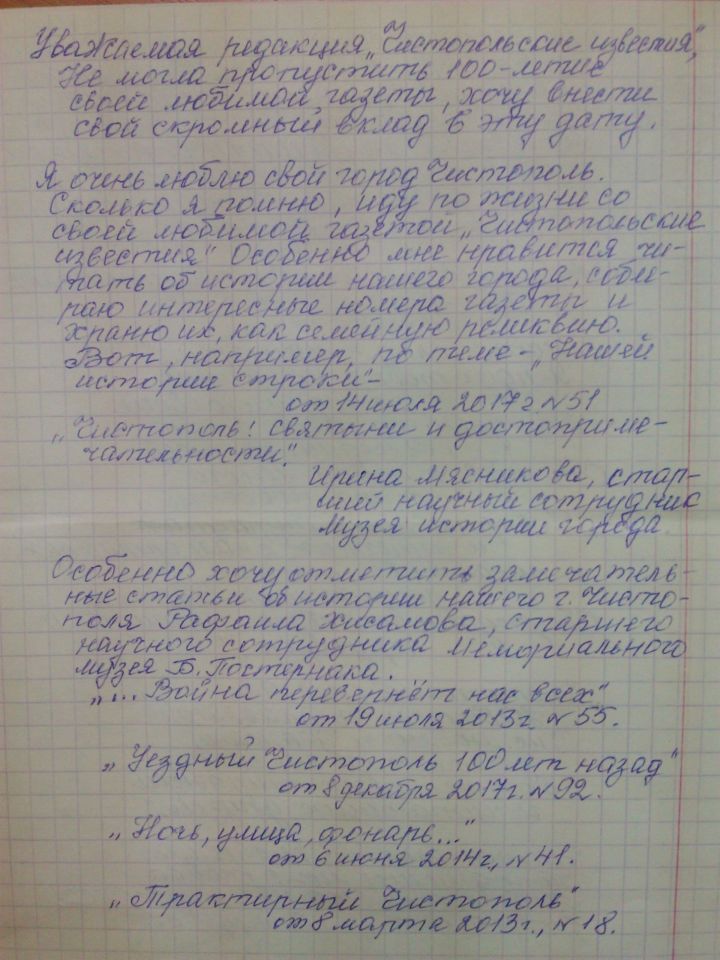 Уважаемая редакция „Чистопольские известия",
Не могла пропустить 100-летие
своей любимой газеты, хочу внести
свой скромный вклад в эту дату.
Я очень люблю свой город Чистополь.
Сколько я помню, иду по жизни со
своей любимой газетой „Чистопольские
известия" Особенно мне нравится чи-
тать об истории нашего города, соби-
раю интересные номера газеты и
храню их, как семейную реликвию.
Вот, например, по теме - „Нашей
истории строки" -
от 14 июля 2017 г №51
„Чистополь! святыни и достоприме-
чательности".
Ирина Мясникова, стар-
ший научный сотрудник
Музея истории города.
Особенно хочу отметить замечатель-
ные статьи об истории нашего г. Чисто-
поля Рафаила Хисамова, старшего
научного сотрудника Мемориального
музея Б. Постернака.
„... Война перевернёт нас всех"
от 19 июля 2013г. №55.
„Уездный Чистополь 100 лет назад"
от 8 декабря 2017г. №92.
„Ночь, улица, фонарь..."
от 6 июня 2014г., №41.
„Трактирный Чистополь"
от 8 марта 2013г., №18.